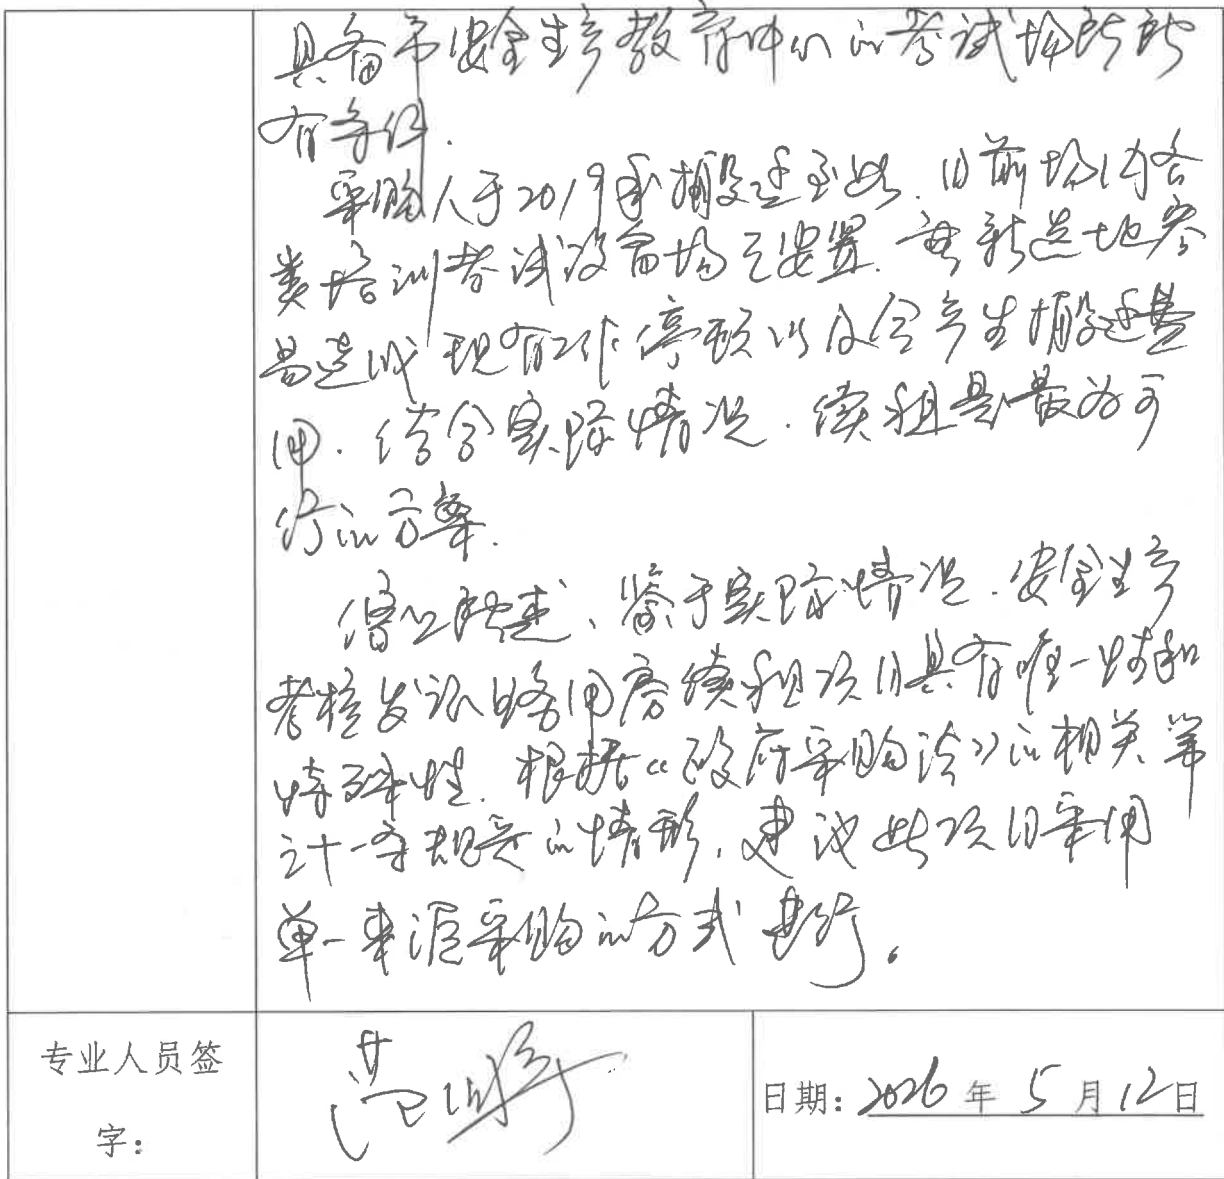 具备市安全生产教育中心的考试场所所
有条件.
采购人于2019年搬迁至此.目前场内各
类培训考试设备均已安置.重新选址容
易造成现有工作停顿以及会产生搬迁费
用.结合实际情况.续租是最为可
行的方案.
综上所述、鉴于实际情况.安全生产
考核发证业务用房续租项目具有唯一性和
特殊性.根据《政府采购法》的相关第
三十一条规定的情形,建议此项目采用
单一来源采购的方式进行。
专业人员签
字:
日期:2026年5月12日